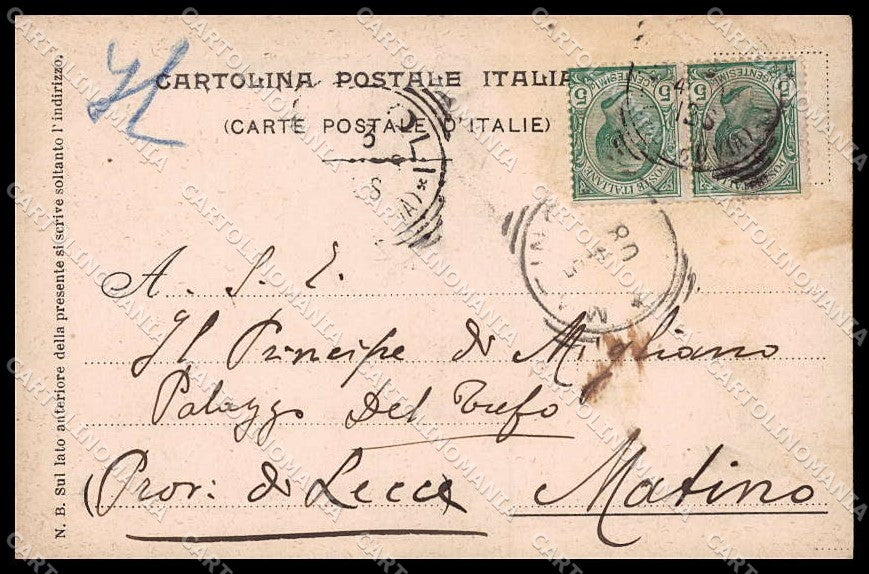 CARTOLINA POSTALE ITALIA
(CARTE POSTALE D'ITALIE)
N. B. Sul lato anteriore della presente si scrive soltanto l'indirizzo.
CENTESIMI
5 5
POSTE ITALIANE
CENTESIMI
5 5
A. S. E.
Il Principe di Migliano
Palazzo Del Tufo
(Prov: di Lecce) Matino
CARTOLINOMANIA